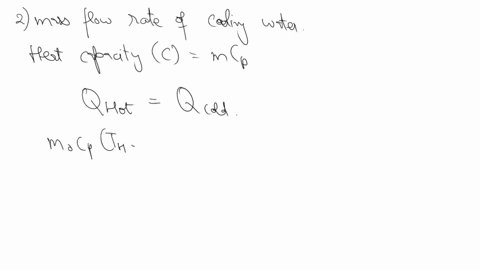 2) mass flow rate of cooling water.
Heat capacity (C) = mCp
QHot = QCold.
mo Cp (TH -